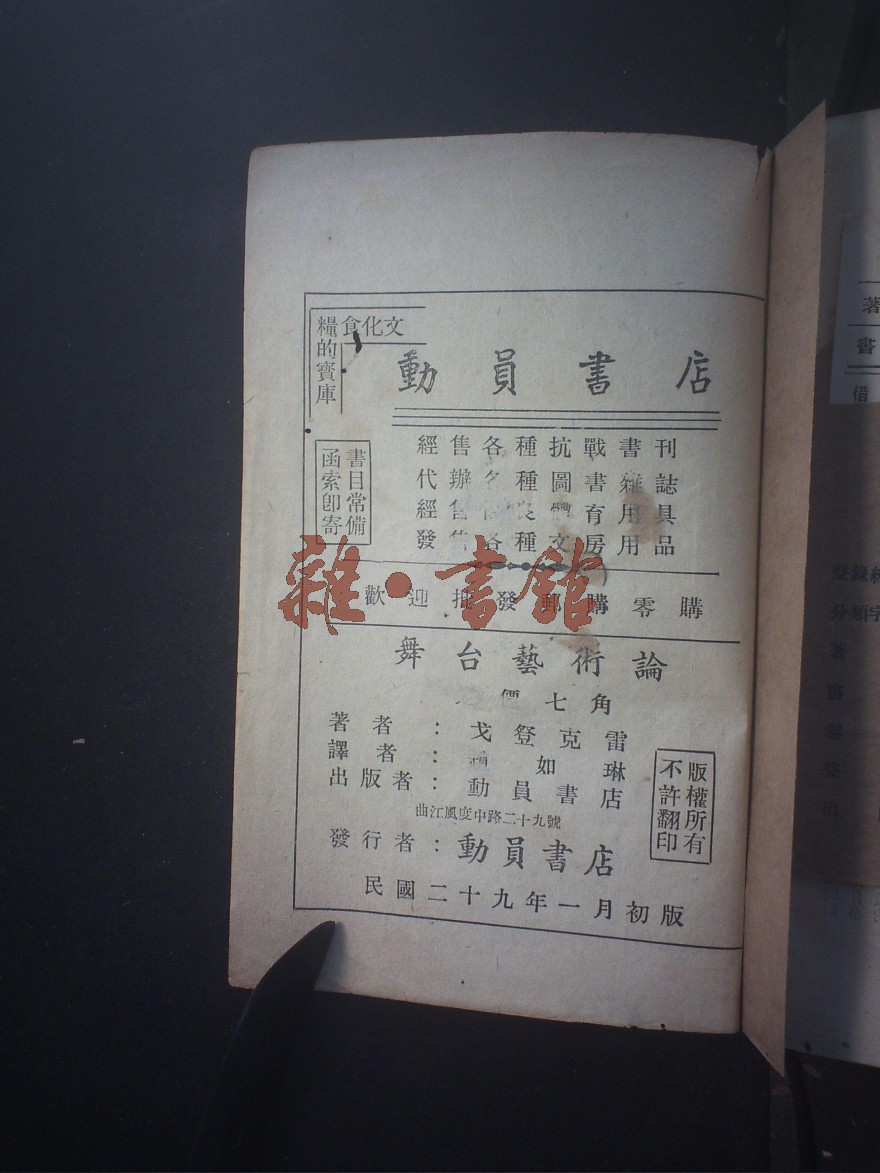 文化食
糧的寶庫
動員書店
書目常備
函索卽寄
經售各種抗戰書刊
代辦各種圖書雜誌
經售 育用具
發售各種文房用品
歡迎批發郵購零購
雜·書館
舞台藝術論
價七角
著者：戈登克雷
譯者： 如琳
出版者：動員書店
曲江風度中路二十九號
發行者：動員書店
版權所有
不許翻印
民國二十九年一月初版
著
書
借
登錄
分類字